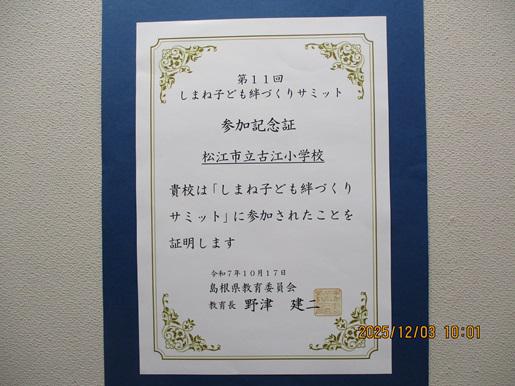 第11回
しまね子ども絆づくりサミット
参加記念証
松江市立古江小学校
貴校は「しまね子ども絆づくり
サミット」に参加されたことを
証明します
令和7年10月17日
島根県教育委員会
教育長 野津 建二
2025/12/03 10:01